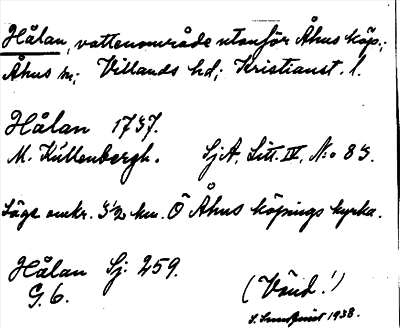 Hålan, vattenområde utanför Åhus köp.;
Åhus sn; Villands hd; Kristianst. l.
Hålan 1737.
M. Kullenbergh. SjA, Litt. IV, No 83.
Läge omkr. 3½ km. Ö Åhus köpings kyrka.
Hålan Sj. 259.
G. 6.
(Vänd!)
1938.